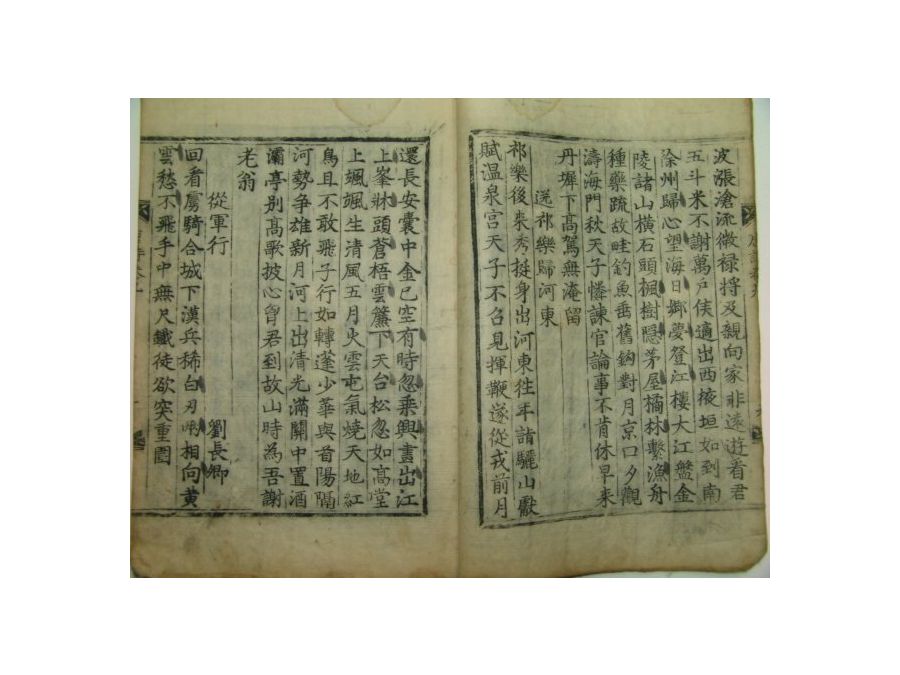 波漲滄流微祿將及親向家非遠遊看君
五斗米不謝萬戶侯適出西掖垣如到南
徐州歸心望海日鄉夢登江樓大江盤金
陵諸山橫石頭楓樹隱茅屋橘林繫漁舟
種藥疏故畦釣魚垂舊鉤對月京口夕觀
濤海門秋天子憐諫官論事不肯休早来
丹墀下高駕無淹留
送祁樂歸河東
祁樂後來秀挺身出河東徃年詣驪山獻
賦溫泉宮天子不召見揮鞭遂從戎前月
還長安囊中金已空有時忽乘興畫出江
上峯牀頭蒼梧雲簾下天台松忽如高堂
上颯颯生清風五月火雲屯氣燒天地紅
鳥且不敢飛子行如轉蓬少華與首陽隔
河勢爭雄新月河上出清光滿關中置酒
灞亭別高歌披心胷君到故山時為吾謝
老翁
從軍行 劉長卿
回看虜騎合城下漢兵稀白刃兩相向黃
雲愁不飛手中無尺鐵徒欲突重圍